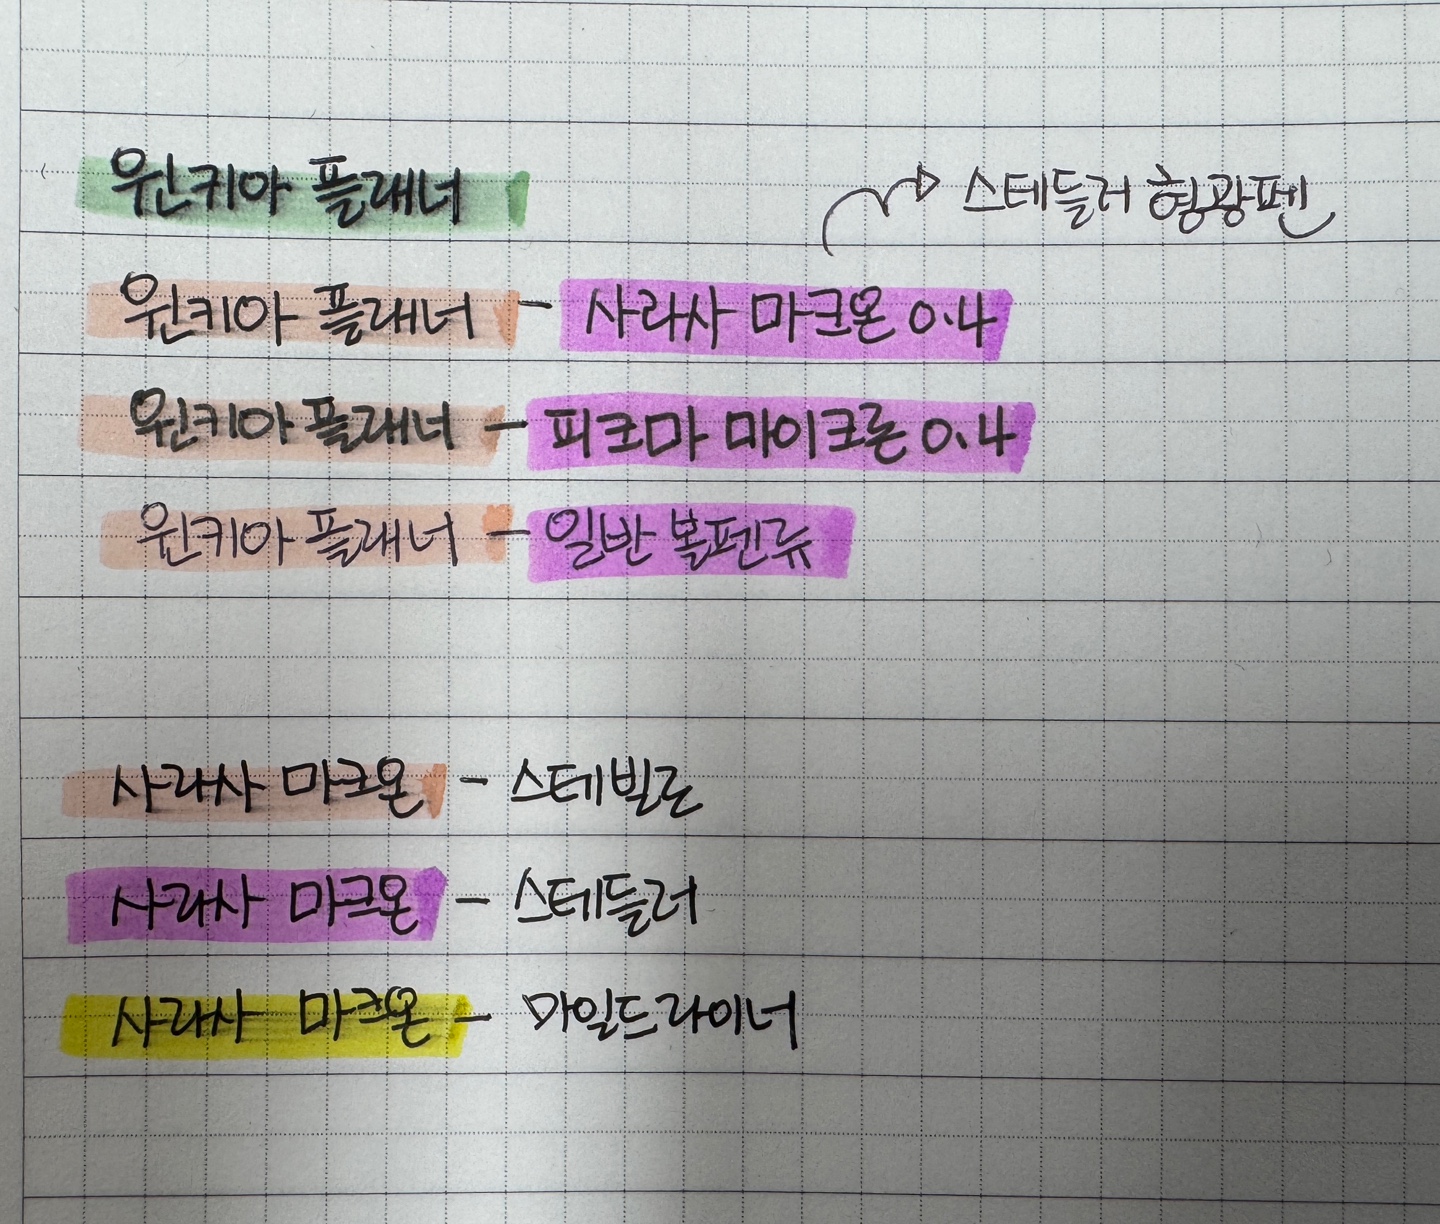 윈키아 플래너
스테들러 형광펜
윈키아 플래너 - 사라사 마크온 0.4
윈키아 플래너 - 피크마 마이크론 0.4
윈키아 플래너 - 일반 볼펜류
사라사 마크온 - 스테빌로
사라사 마크온 - 스테들러
사라사 마크온 - 마일드라이너